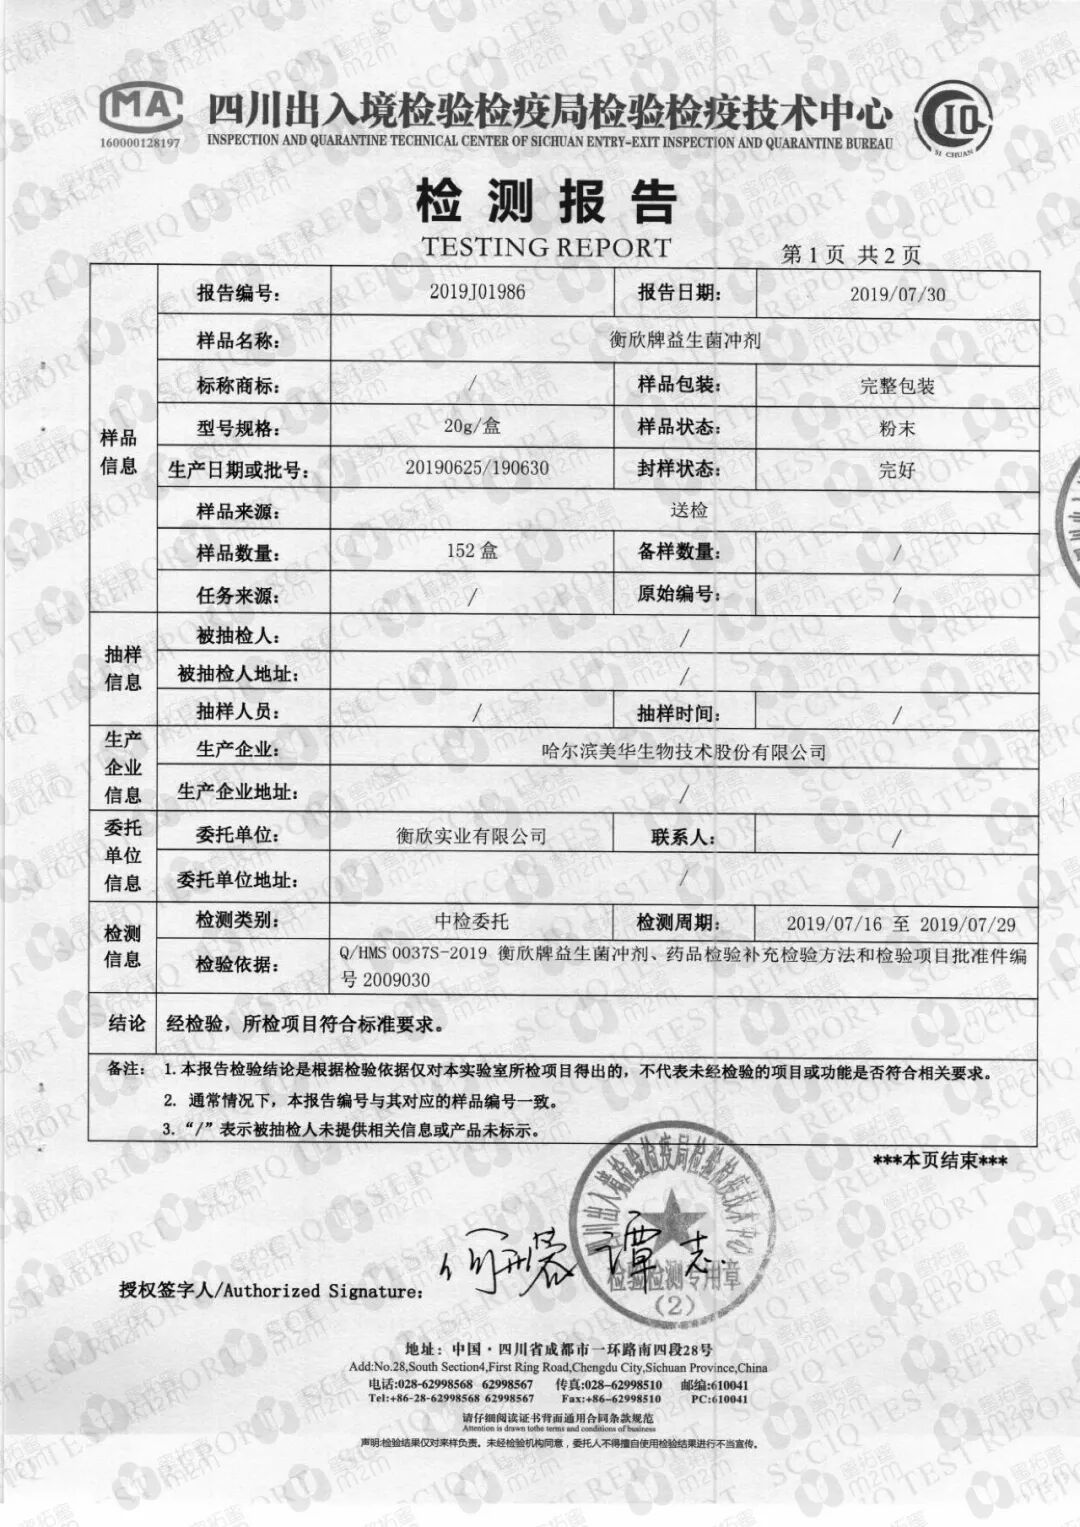 MA
160000128197
四川出入境检验检疫局检验检疫技术中心
INSPECTION AND QUARANTINE TECHNICAL CENTER OF SICHUAN ENTRY-EXIT INSPECTION AND QUARANTINE BUREAU
CIQ
SI CHUAN
检测报告
TESTING REPORT
第1页 共2页
样品信息
报告编号： 2019J01986 报告日期： 2019/07/30
样品名称： 衡欣牌益生菌冲剂
标称商标： / 样品包装： 完整包装
型号规格： 20g/盒 样品状态： 粉末
生产日期或批号： 20190625/190630 封样状态： 完好
样品来源： 送检
样品数量： 152盒 备样数量： /
任务来源： / 原始编号： /
抽样信息
被抽检人： /
被抽检人地址： /
抽样人员： / 抽样时间： /
生产企业信息
生产企业： 哈尔滨美华生物技术股份有限公司
生产企业地址： /
委托单位信息
委托单位： 衡欣实业有限公司 联系人： /
委托单位地址： /
检测信息
检测类别： 中检委托 检测周期： 2019/07/16 至 2019/07/29
检验依据： Q/HMS 0037S-2019 衡欣牌益生菌冲剂、药品检验补充检验方法和检验项目批准件编
号 2009030
结论 经检验，所检项目符合标准要求。
备注： 1.本报告检验结论是根据检验依据仅对本实验室所检项目得出的，不代表未经检验的项目或功能是否符合相关要求。
2. 通常情况下，本报告编号与其对应的样品编号一致。
3. “/”表示被抽检人未提供相关信息或产品未标示。
***本页结束***
四川出入境检验检疫局检验检疫技术中心
检验检测专用章
（2）
授权签字人/Authorized Signature：
地址：中国·四川省成都市一环路南四段28号
Add:No.28,South Section4,First Ring Road,Chengdu City,Sichuan Province,China
电话:028-62998568 62998567 传真:028-62998510 邮编:610041
Tel:+86-28-62998568 62998567 Fax:+86-62998510 PC:610041
请仔细阅读证书背面通用合同条款规范
Attention is drawn tothe terms and conditions of business
声明:检验结果仅对来样负责。未经检验机构同意，委托人不得擅自使用检验结果进行不当宣传。